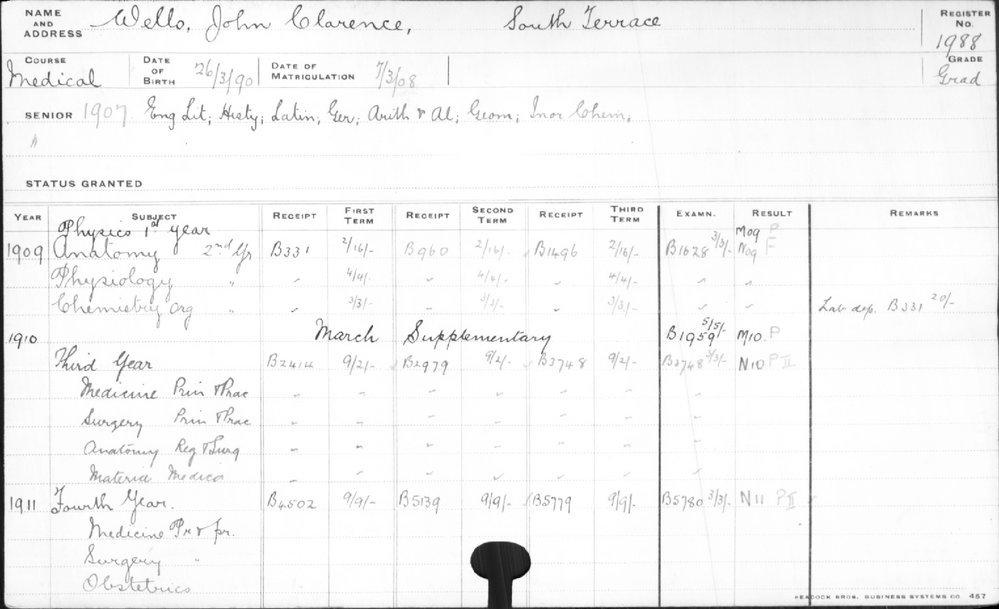 NAME AND ADDRESS Wells, John Clarence, South Terrace REGISTER No. 1988
COURSE Medical DATE OF BIRTH 26/3/90 DATE OF MATRICULATION 7/3/08 GRADE Grad
SENIOR 1907 Eng Lit; Histy; Latin; Ger; Arith & Al; Geom; Inor Chem.
STATUS GRANTED
YEAR SUBJECT RECEIPT FIRST TERM RECEIPT SECOND TERM RECEIPT THIRD TERM EXAMN. RESULT REMARKS
Physics 1st year M09 P
1909 Anatomy 2nd Yr B331 2/16/- B960 2/16/- B1496 2/16/- B1628 3/3/- N09 F
Physiology " " 4/4/- " 4/4/- " 4/4/- " "
Chemistry Org " " 3/3/- " 3/3/- " 3/3/- " " Lab dep. B331 20/-
1910 March Supplementary B1959 5/5/- M10. P
Third Year B2414 9/2/- B2979 9/2/- B3748 9/2/- B3748 3/3/- N10 P II
Medicine Prin & Prac " " " " " " "
Surgery Prin & Prac " " " " "
Anatomy Reg & Surg " " " " " " "
Materia Medica " " " " " " "
1911 Fourth Year. B4502 9/9/- B5139 9/9/- B5779 9/9/- B5780 3/3/- N11 P II
Medicine Pr & pr.
Surgery "
Obstetrics
PEACOCK BROS. BUSINESS SYSTEMS CO. 457